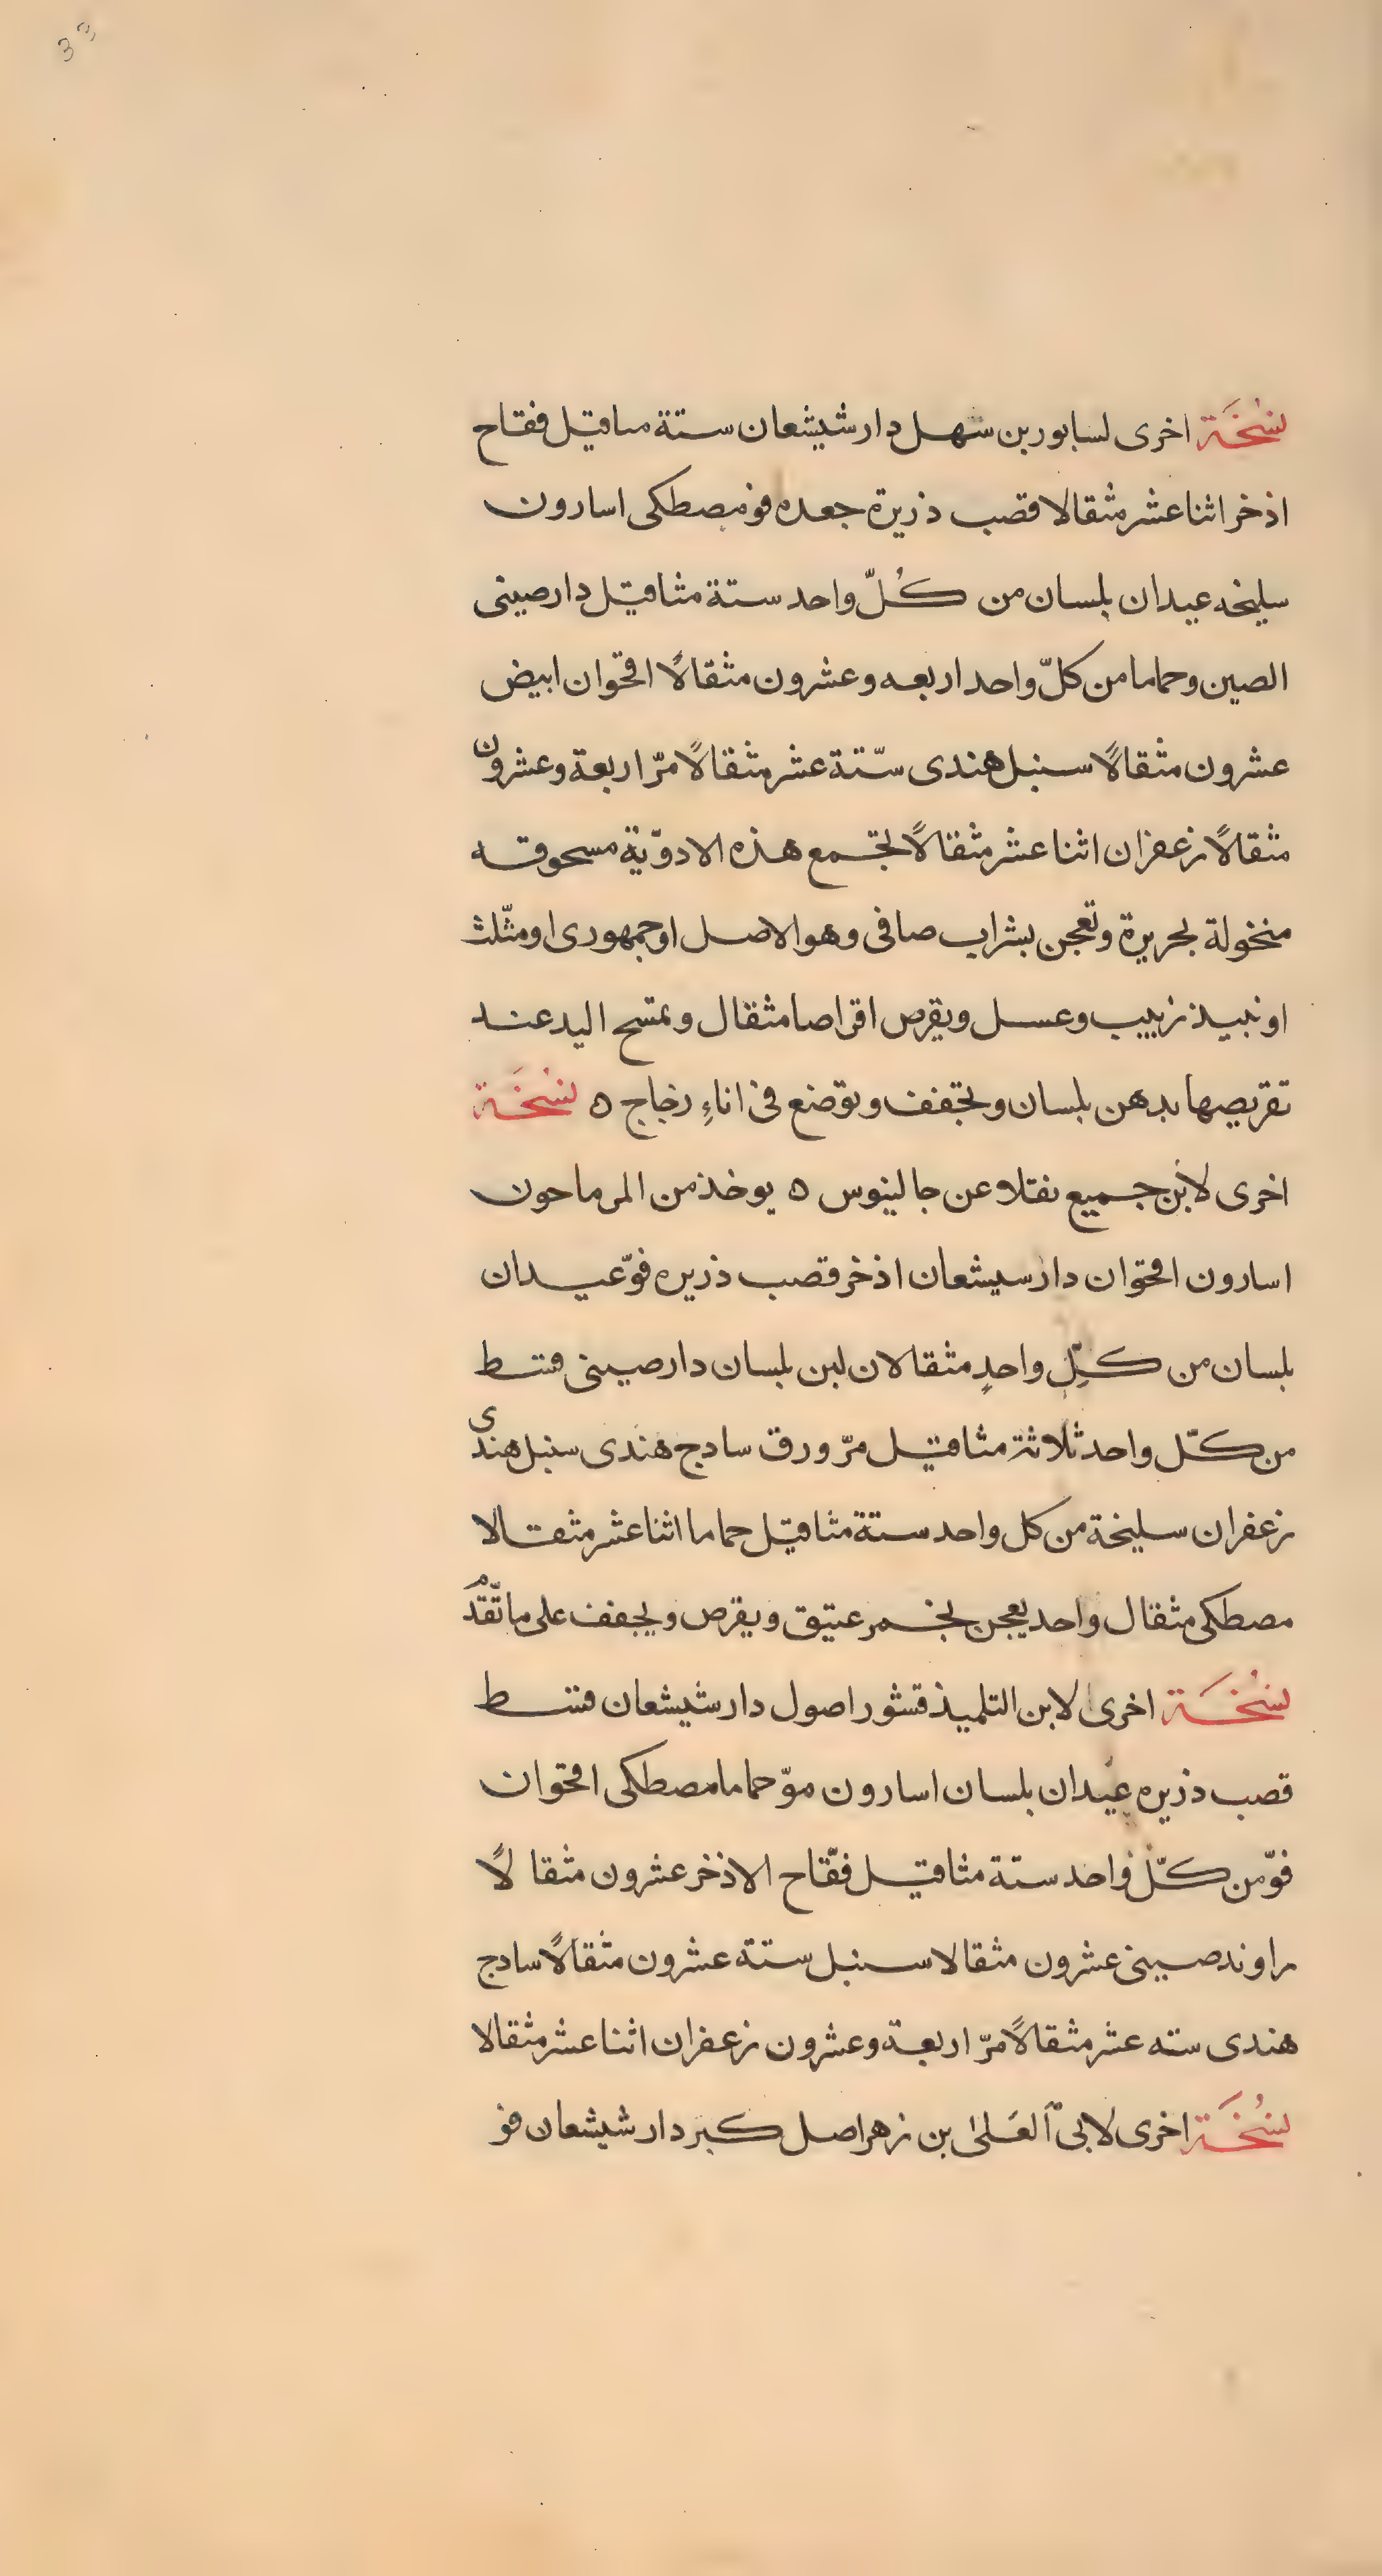 33
نُسْخَة اخرى لسابور بن سهل دار شيشعان ستة مثاقيل فقاح
اذخر اثنا عشر مثقالا قصب ذزيرة جعده فو مصطكى اسارون
سليخه عيدان بلسان من كُلّ واحد ستة مثاقيل دارصينى
الصين وحماما من كلّ واحد اربعه وعشرون مثقالًا اقحوان ابيض
عشرون مثقالًا سنبل هندى ستّة عشر مثقالًا مرّ اربعة وعشرون
مثقالًا زعفران اثنا عشر مثقالًا تجمع هذه الادوّية مسحوقه
منخولة بحريرة وتعجن بشراب صافى وهو الاصل او جمهورى او مثّلث
او نبيذ زبيب وعسل ويقرص اقراصا مثقال وتمسح اليد عند
تقريصها بدهن بلسان وتجفف وتوضع فى اناءِ زجاج ه نُسْخَة
اخرى لأبن جميع نقلا عن جالينوس ه يوخذ من المرماحون
اسارون اقحوان دار سيشعان اذخر قصب ذزيره فوّ عيدان
بلسان من كلِّ واحدٍ مثقالان لبن بلسان دارصينى قسط
من كلّ واحد ثلاثة مثاقيل مرّ ورق سادج هندى سنبل هندى
زعفران سليخة من كل واحد ستة مثاقيل حماما اثنا عشر مثقالا
مصطكى مثقال واحد يعجن بخمر عتيق ويقرص ويجفف على ما تّقدُم
نُسْخَة اخرى لابن التلميذ قشور اصول دار شيشعان قسط
قصب دزيره عيدان بلسان اسارون موّ حماما مصطكى اقحوان
فوّ من كلّ واحد ستة مثاقيل فقّاح الاذخر عشرون مثقالًا
راوند صينى عشرون مثقالا سنبل ستة عشرون مثقالًا سادج
هندى سته عشر مثقالًا مرّ اربعة وعشرون زعفران اثنا عشر مثقالا
نُسْخَة اخرى لابى العَلىٰ بن زهر اصل كبر دار شيشعان فو